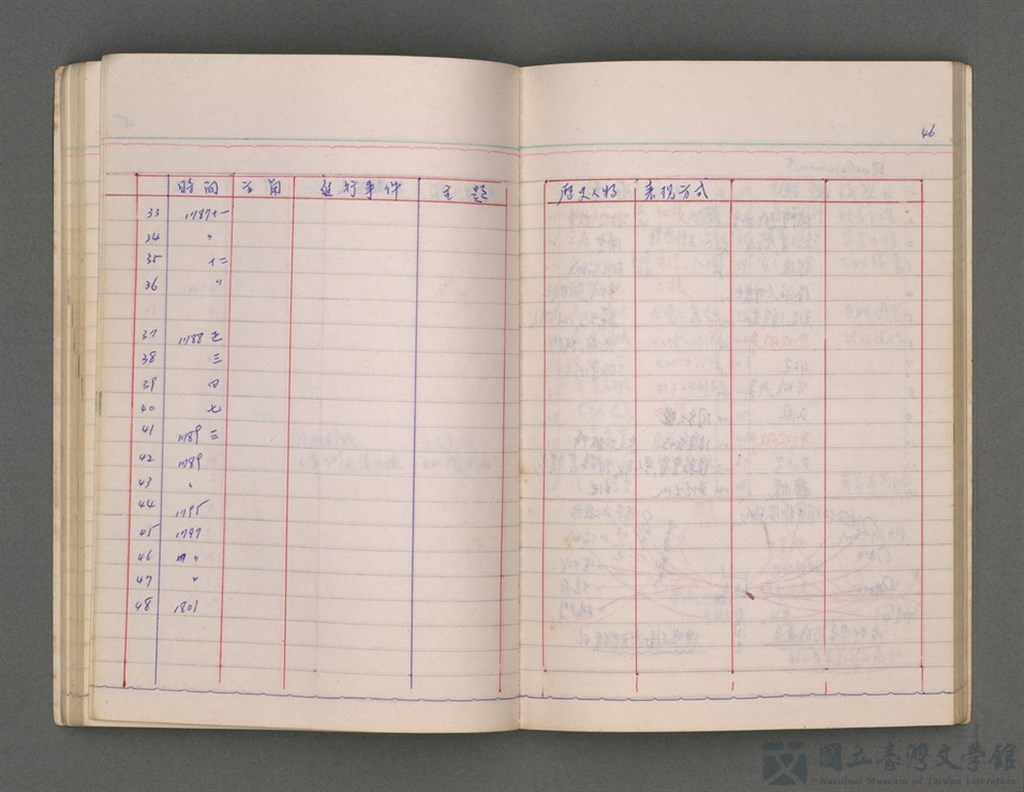 46
時間 主角 進行事件 主題 歷史人物 表現方式
33 1787十一
34 〃
35 十二
36 〃
37 1788 正
38 三
39 四
40 七
41 1789 三
42 1789
43 〃
44 1795
45 1797
46 〃
47 〃
48 1801
國立臺灣文學館
National Museum of Taiwan Literature